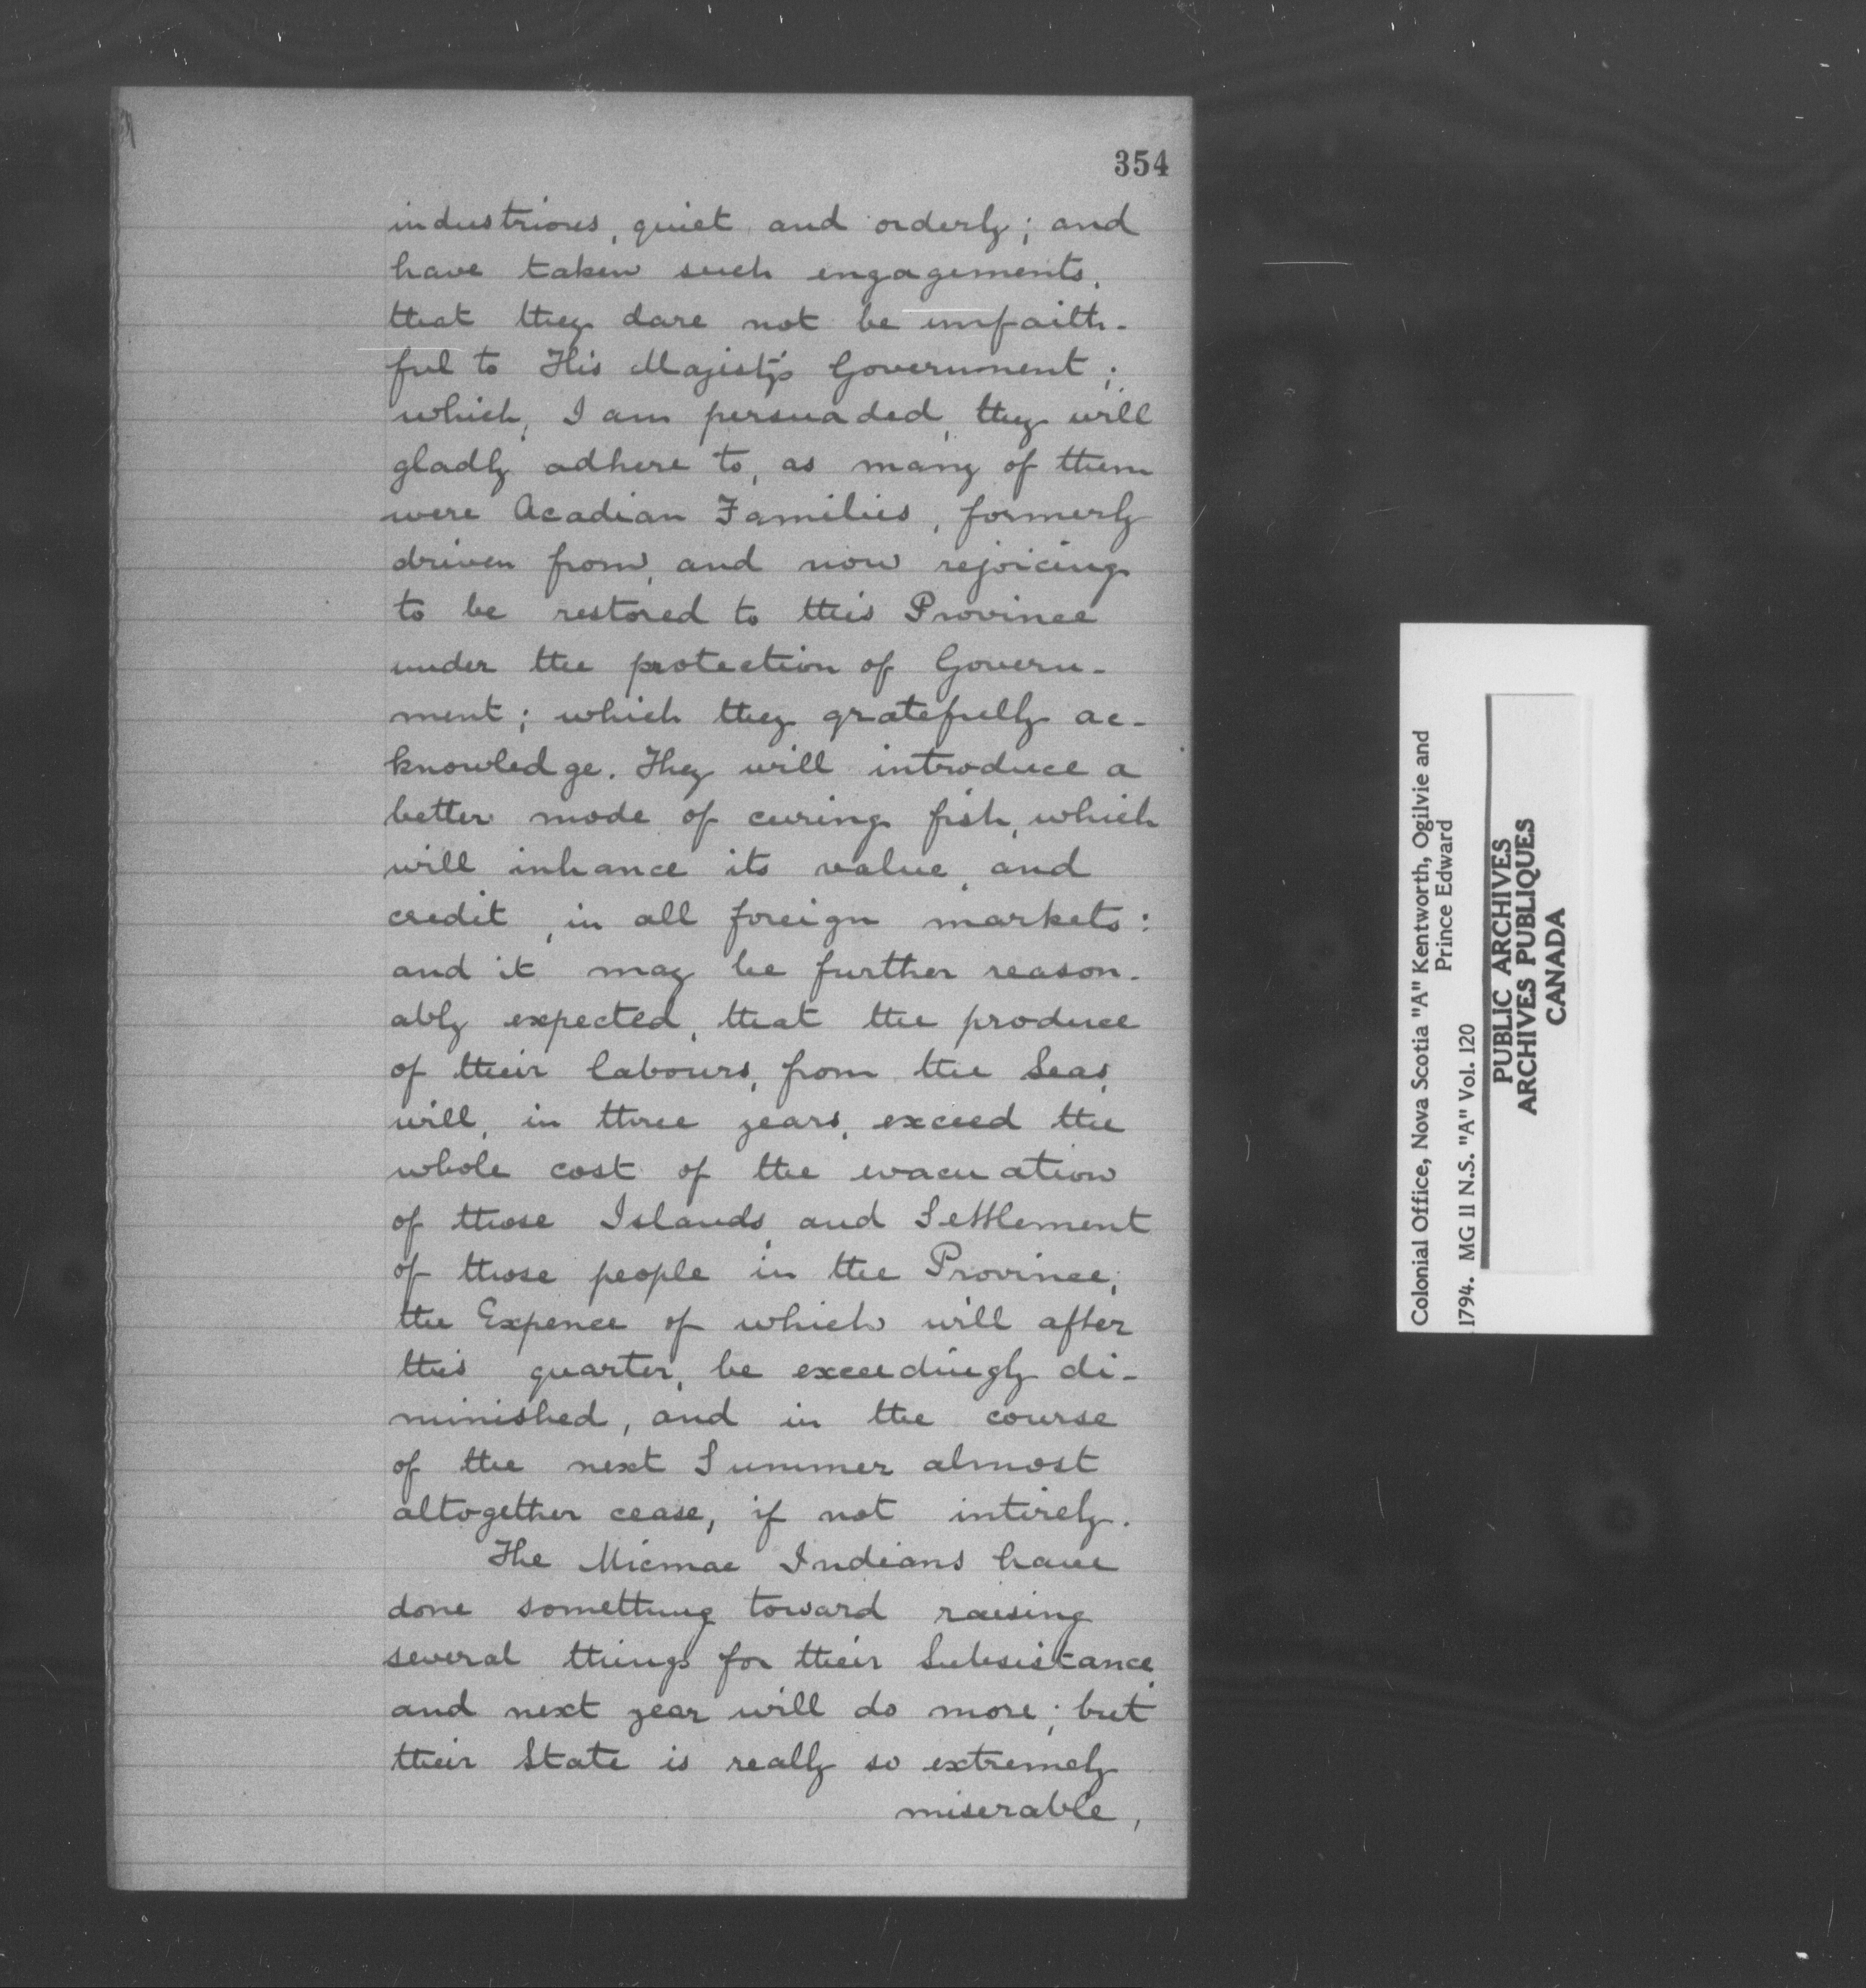 354
industrious, quiet and orderly; and
have taken such engagements,
that they dare not be unfaith-
ful to His Majesty's Government;
which, I am persuaded, they will
gladly adhere to, as many of them
were Acadian Families, formerly
driven from, and now rejoicing
to be restored to this Province
under the protection of Govern-
ment; which they gratefully ac-
knowledge. They will introduce a
better mode of curing fish, which
will inhance its value, and
credit, in all foreign markets:
and it may be further reason-
ably expected, that the produce
of their labours, from the Seas,
will, in three years, exceed the
whole cost of the evacuation
of those Islands, and Settlement
of those people in the Province;
the Expence of which will after
this quarter, be exceedingly di-
minished, and in the course
of the next Summer almost
altogether cease, if not intirely.
The Micmac Indians have
done something toward raising
several things for their Subsistance,
and next year will do more; but
their State is really so extremely
miserable,
Colonial Office, Nova Scotia "A" Kentworth, Ogilvie and
Prince Edward
1794. MG 11 N.S. "A" Vol. 120
PUBLIC ARCHIVES
ARCHIVES PUBLIQUES
CANADA